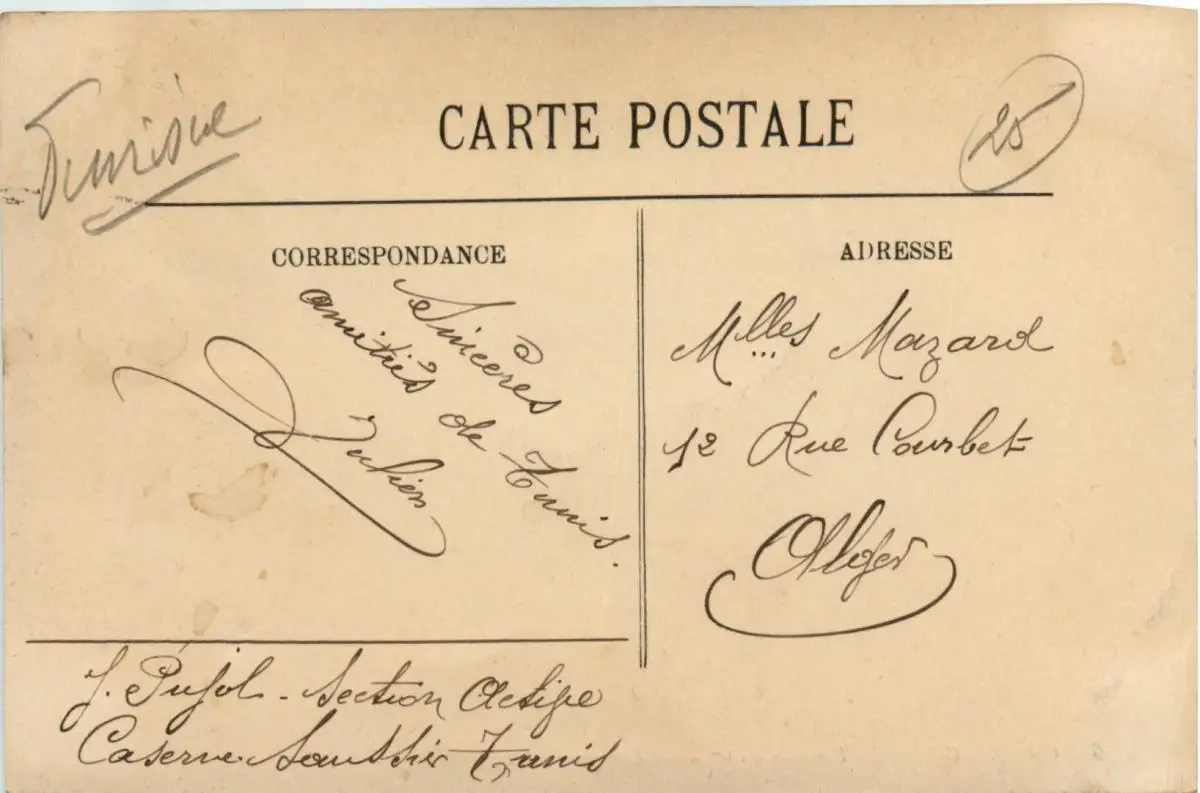 Tunisie
CARTE POSTALE
25
CORRESPONDANCE
Sincères
amitiés de Tunis.
Julien
ADRESSE
Mlles Mazard
12 Rue Courbet
Alger
J. Pujol - Section Active
Caserne Saussier Tunis